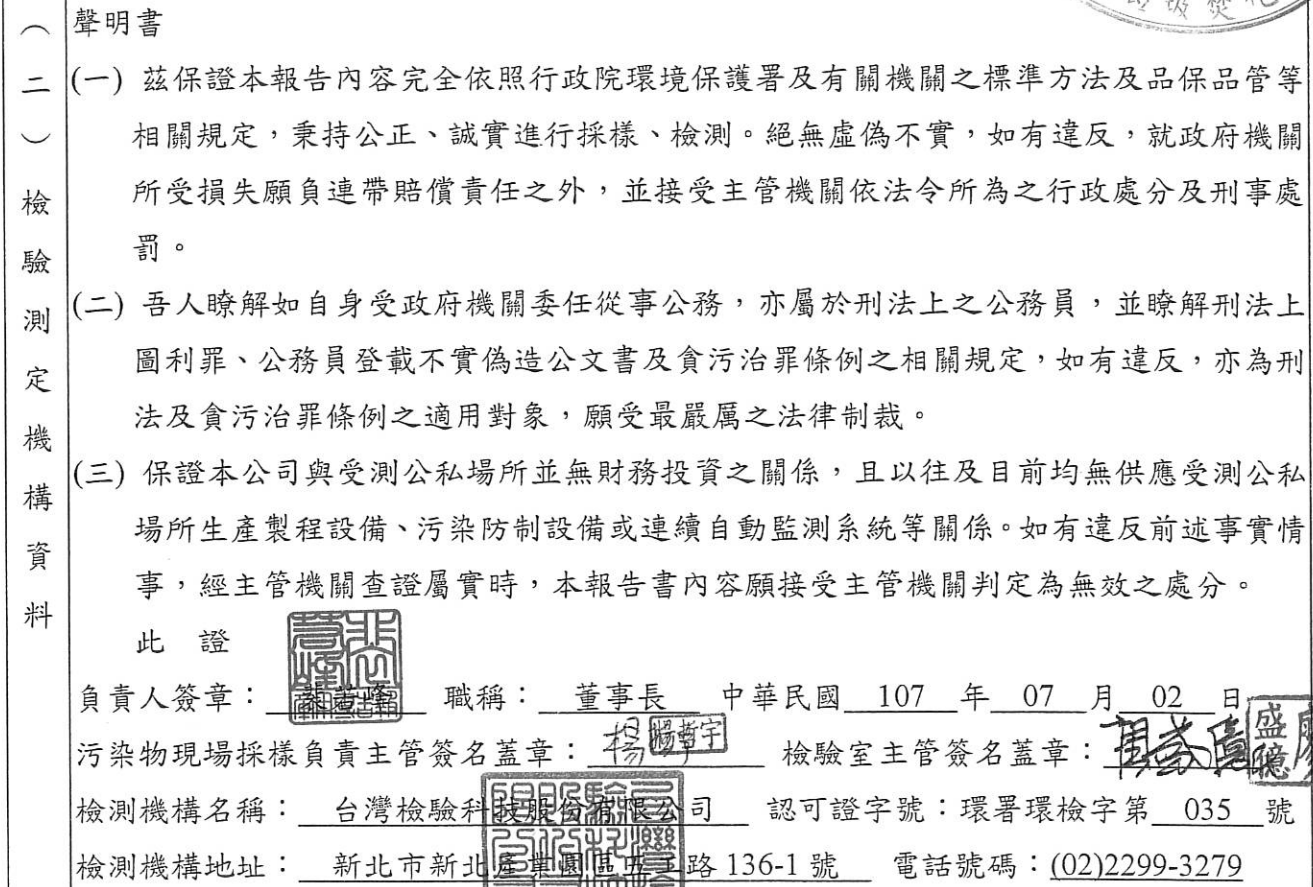 垃圾焚化
(二)檢驗測定機構資料
聲明書
(一) 茲保證本報告內容完全依照行政院環境保護署及有關機關之標準方法及品保品管等
相關規定,秉持公正、誠實進行採樣、檢測。絕無虛偽不實,如有違反,就政府機關
所受損失願負連帶賠償責任之外,並接受主管機關依法令所為之行政處分及刑事處
罰。
(二) 吾人瞭解如自身受政府機關委任從事公務,亦屬於刑法上之公務員,並瞭解刑法上
圖利罪、公務員登載不實偽造公文書及貪污治罪條例之相關規定,如有違反,亦為刑
法及貪污治罪條例之適用對象,願受最嚴厲之法律制裁。
(三) 保證本公司與受測公私場所並無財務投資之關係,且以往及目前均無供應受測公私
場所生產製程設備、污染防制設備或連續自動監測系統等關係。如有違反前述事實情
事,經主管機關查證屬實時,本報告書內容願接受主管機關判定為無效之處分。
此 證
負責人簽章: 職稱: 董事長 中華民國 107 年 07 月 02 日
污染物現場採樣負責主管簽名蓋章: 楊 檢驗室主管簽名蓋章: 盛億
檢測機構名稱: 台灣檢驗科技股份有限公司 認可證字號:環署環檢字第 035 號
檢測機構地址: 新北市新北產業園區五工路 136-1 號 電話號碼:(02)2299-3279